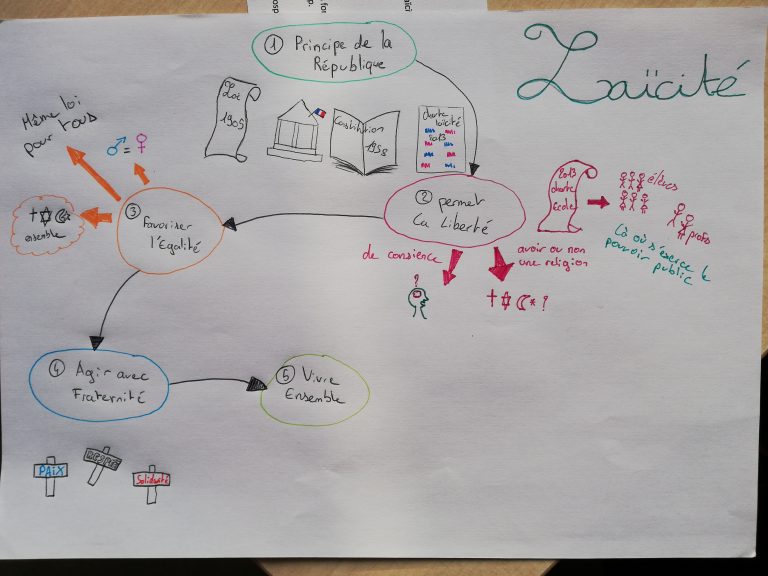 Laïcité
① Principe de la
République
Loi
1905
Constitution
1958
charte
laïcité
2013
② permet
La Liberté
2013
charte
école
élèves
profs
Là où s'exerce le
pouvoir public
de consience
avoir ou non
une religion
?
?
③ Favoriser
l'Egalité
Même loi
pour tous
=
ensemble
④ Agir avec
Fraternité
⑤ Vivre
Ensemble
PAIX
Solidarité